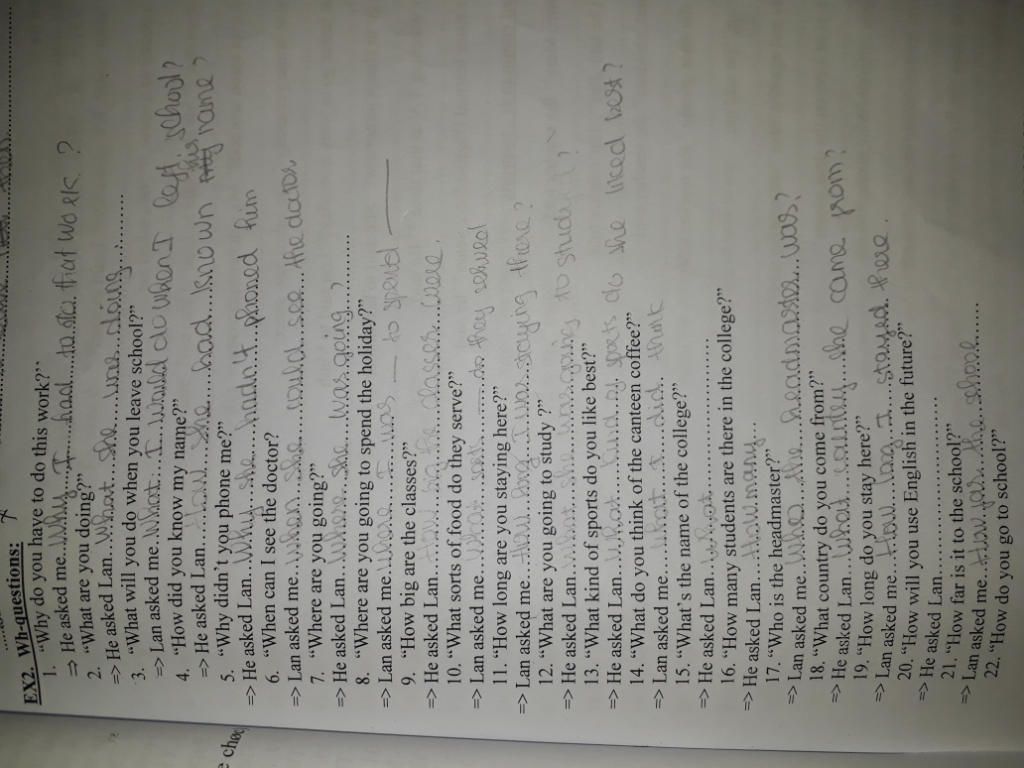 EX2. Wh-questions:
1. "Why do you have to do this work?"
=> He asked me...Why...I...had...to...do...that work ?
2. "What are you doing?"
=> He asked Lan...What...she...was...doing............
3. "What will you do when you leave school?"
=> Lan asked me...What...I...would do when I left school?
4. "How did you know my name?"
=> He asked Lan....How...she...had...known his name ?
5. "Why didn't you phone me?"
=> He asked Lan....Why...she...hadn't...phoned him
6. "When can I see the doctor?
=> Lan asked me...When...she...could...see...the doctor
7. "Where are you going?"
=> He asked Lan....Where...she...was going....?.........
8. "Where are you going to spend the holiday?"
=> Lan asked me...where...I...was — to spend —
9. "How big are the classes?"
=> He asked Lan....How...big the classes...were.
10. "What sorts of food do they serve?"
=> Lan asked me....What...sorts.......do they served
11. "How long are you staying here?"
=> Lan asked me....How long I was...staying there ?
12. "What are you going to study ?"
=> He asked Lan....What she was going to study ?
13. "What kind of sports do you like best?"
=> He asked Lan....What kind of sports do she liked best ?
14. "What do you think of the canteen coffee?"
=> Lan asked me....what...I...did...think
15. "What's the name of the college?"
=> He asked Lan....what...................
16. "How many students are there in the college?"
=> He asked Lan....How many...
17. "Who is the headmaster?"
=> Lan asked me....Who...the...headmaster...was?
18. "What country do you come from?"
=> He asked Lan....what country...she came from?
19. "How long do you stay here?"
=> Lan asked me....How...long I...stayed...here.
20. "How will you use English in the future?"
=> He asked Lan................................
21. "How far is it to the school?"
=> Lan asked me...How far...the...shool.......
22. "How do you go to school?"